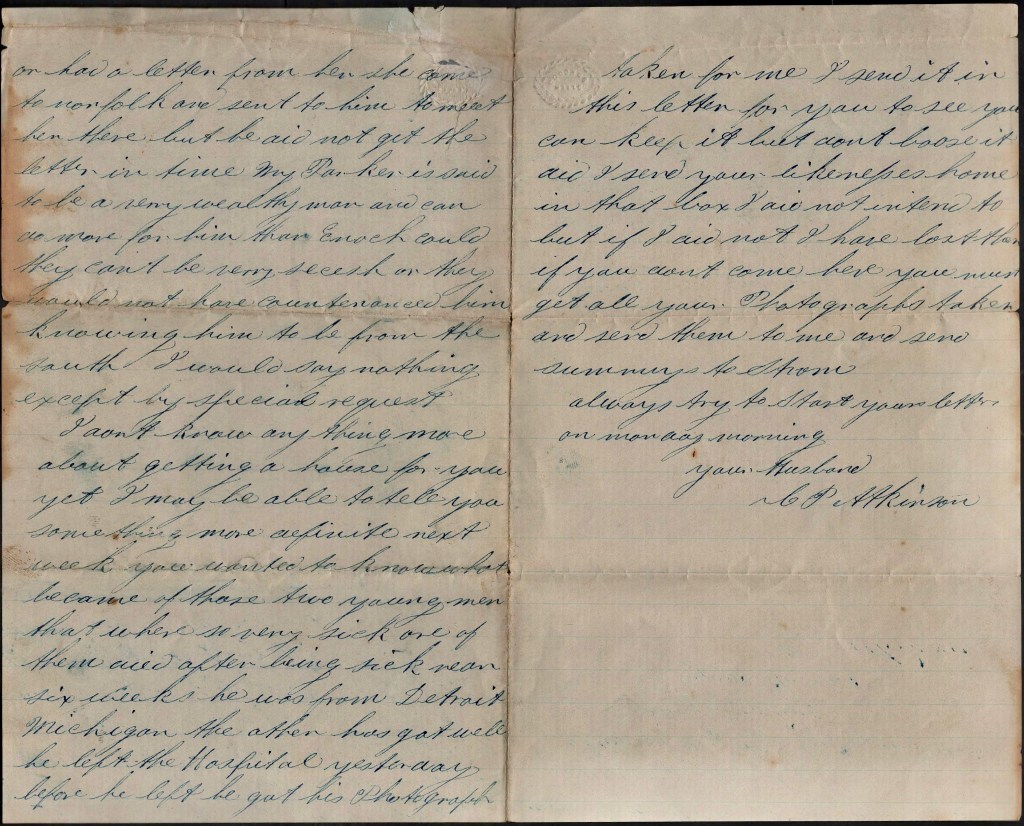 or had a letter from her she came
to norfolk and sent to him to meet
her there but he did not get the
letter in time My Parker is said
to be a very wealthy man and can
do more for him than Enoch could
they can't be very secesh or they
would not have countenanced him
knowing him to be from the
south I would say nothing
except by special request
I dont know any thing more
about getting a house for you
yet I may be able to tell you
something more definite next
week you wanted to know what
became of those two young men
that where so very sick one of
them died after being sick near
six weeks he was from Detroit
Michigan the other has got well
he left the Hospital yesterday
before he left he got his Photograph
taken for me I send it in
this letter for you to see you
can keep it but dont loose it
did I send your likenesses home
in that box I did not intend to
but if I did not I have lost them
if you dont come here you must
get all your Photographs taken
and send them to me and send
summys to Strom
always try to Start your letters
on monday morning
your Husband
C P Atkinson